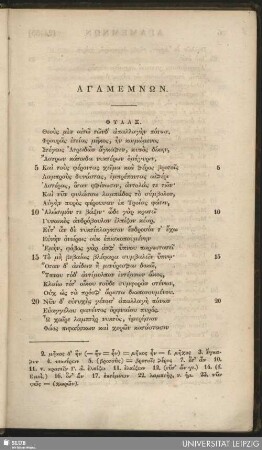 ΑΓΑΜΕΜΝΩΝ.
ΦΥΛΑΞ.
Θεοὺς μὲν αἰτῶ τῶνδ' ἀπαλλαγὴν πόνων,
Φρουρᾶς ἐτείας μῆκος, ἣν κοιμώμενος
Στέγαις Ἀτρειδῶν ἄγκαθεν, κυνὸς δίκην,
Ἄστρων κάτοιδα νυκτέρων ὁμήγυριν,
5 Καὶ τοὺς φέροντας χεῖμα καὶ θέρος βροτοῖς 5
Λαμπροὺς δυνάστας, ἐμπρέποντας αἰθέρι
Ἀστέρας, ὅταν φθίνωσιν, ἀντολάς τε τῶν·
Καὶ νῦν φυλάσσω λαμπάδος τὸ σύμβολον,
Αὐγὴν πυρὸς φέρουσαν ἐκ Τροίας φάτιν,
10 Ἁλώσιμόν τε βάξιν· ὧδε γὰρ κρατεῖ 10
Γυναικὸς ἀνδρόβουλον ἐλπίζον κέαρ.
Εὖτ' ἂν δὲ νυκτίπλαγκτον ἔνδροσόν τ' ἔχω
Εὐνὴν ὀνείροις οὐκ ἐπισκοπουμένην
Ἐμήν, φόβος γὰρ ἀνθ' ὕπνου παραστατεῖ
15 Τὸ μὴ βεβαίως βλέφαρα συμβαλεῖν ὕπνῳ· 15
Ὅταν δ' ἀείδειν ἢ μινύρεσθαι δοκῶ,
Ὕπνου τόδ' ἀντίμολπον ἐντέμνων ἄκος,
Κλαίω τότ' οἴκου τοῦδε συμφορὰν στένων,
Οὐχ ὡς τὰ πρόσθ' ἄριστα διαπονουμένου.
20 Νῦν δ' εὐτυχὴς γένοιτ' ἀπαλλαγὴ πόνων 20
Εὐαγγέλου φανέντος ὀρφναίου πυρός.
Ὦ χαῖρε λαμπτὴρ νυκτὸς, ἡμερήσιον
Φάος πιφαύσκων καὶ χορῶν κατάστασιν
UNIVERSITÄT LEIPZIG